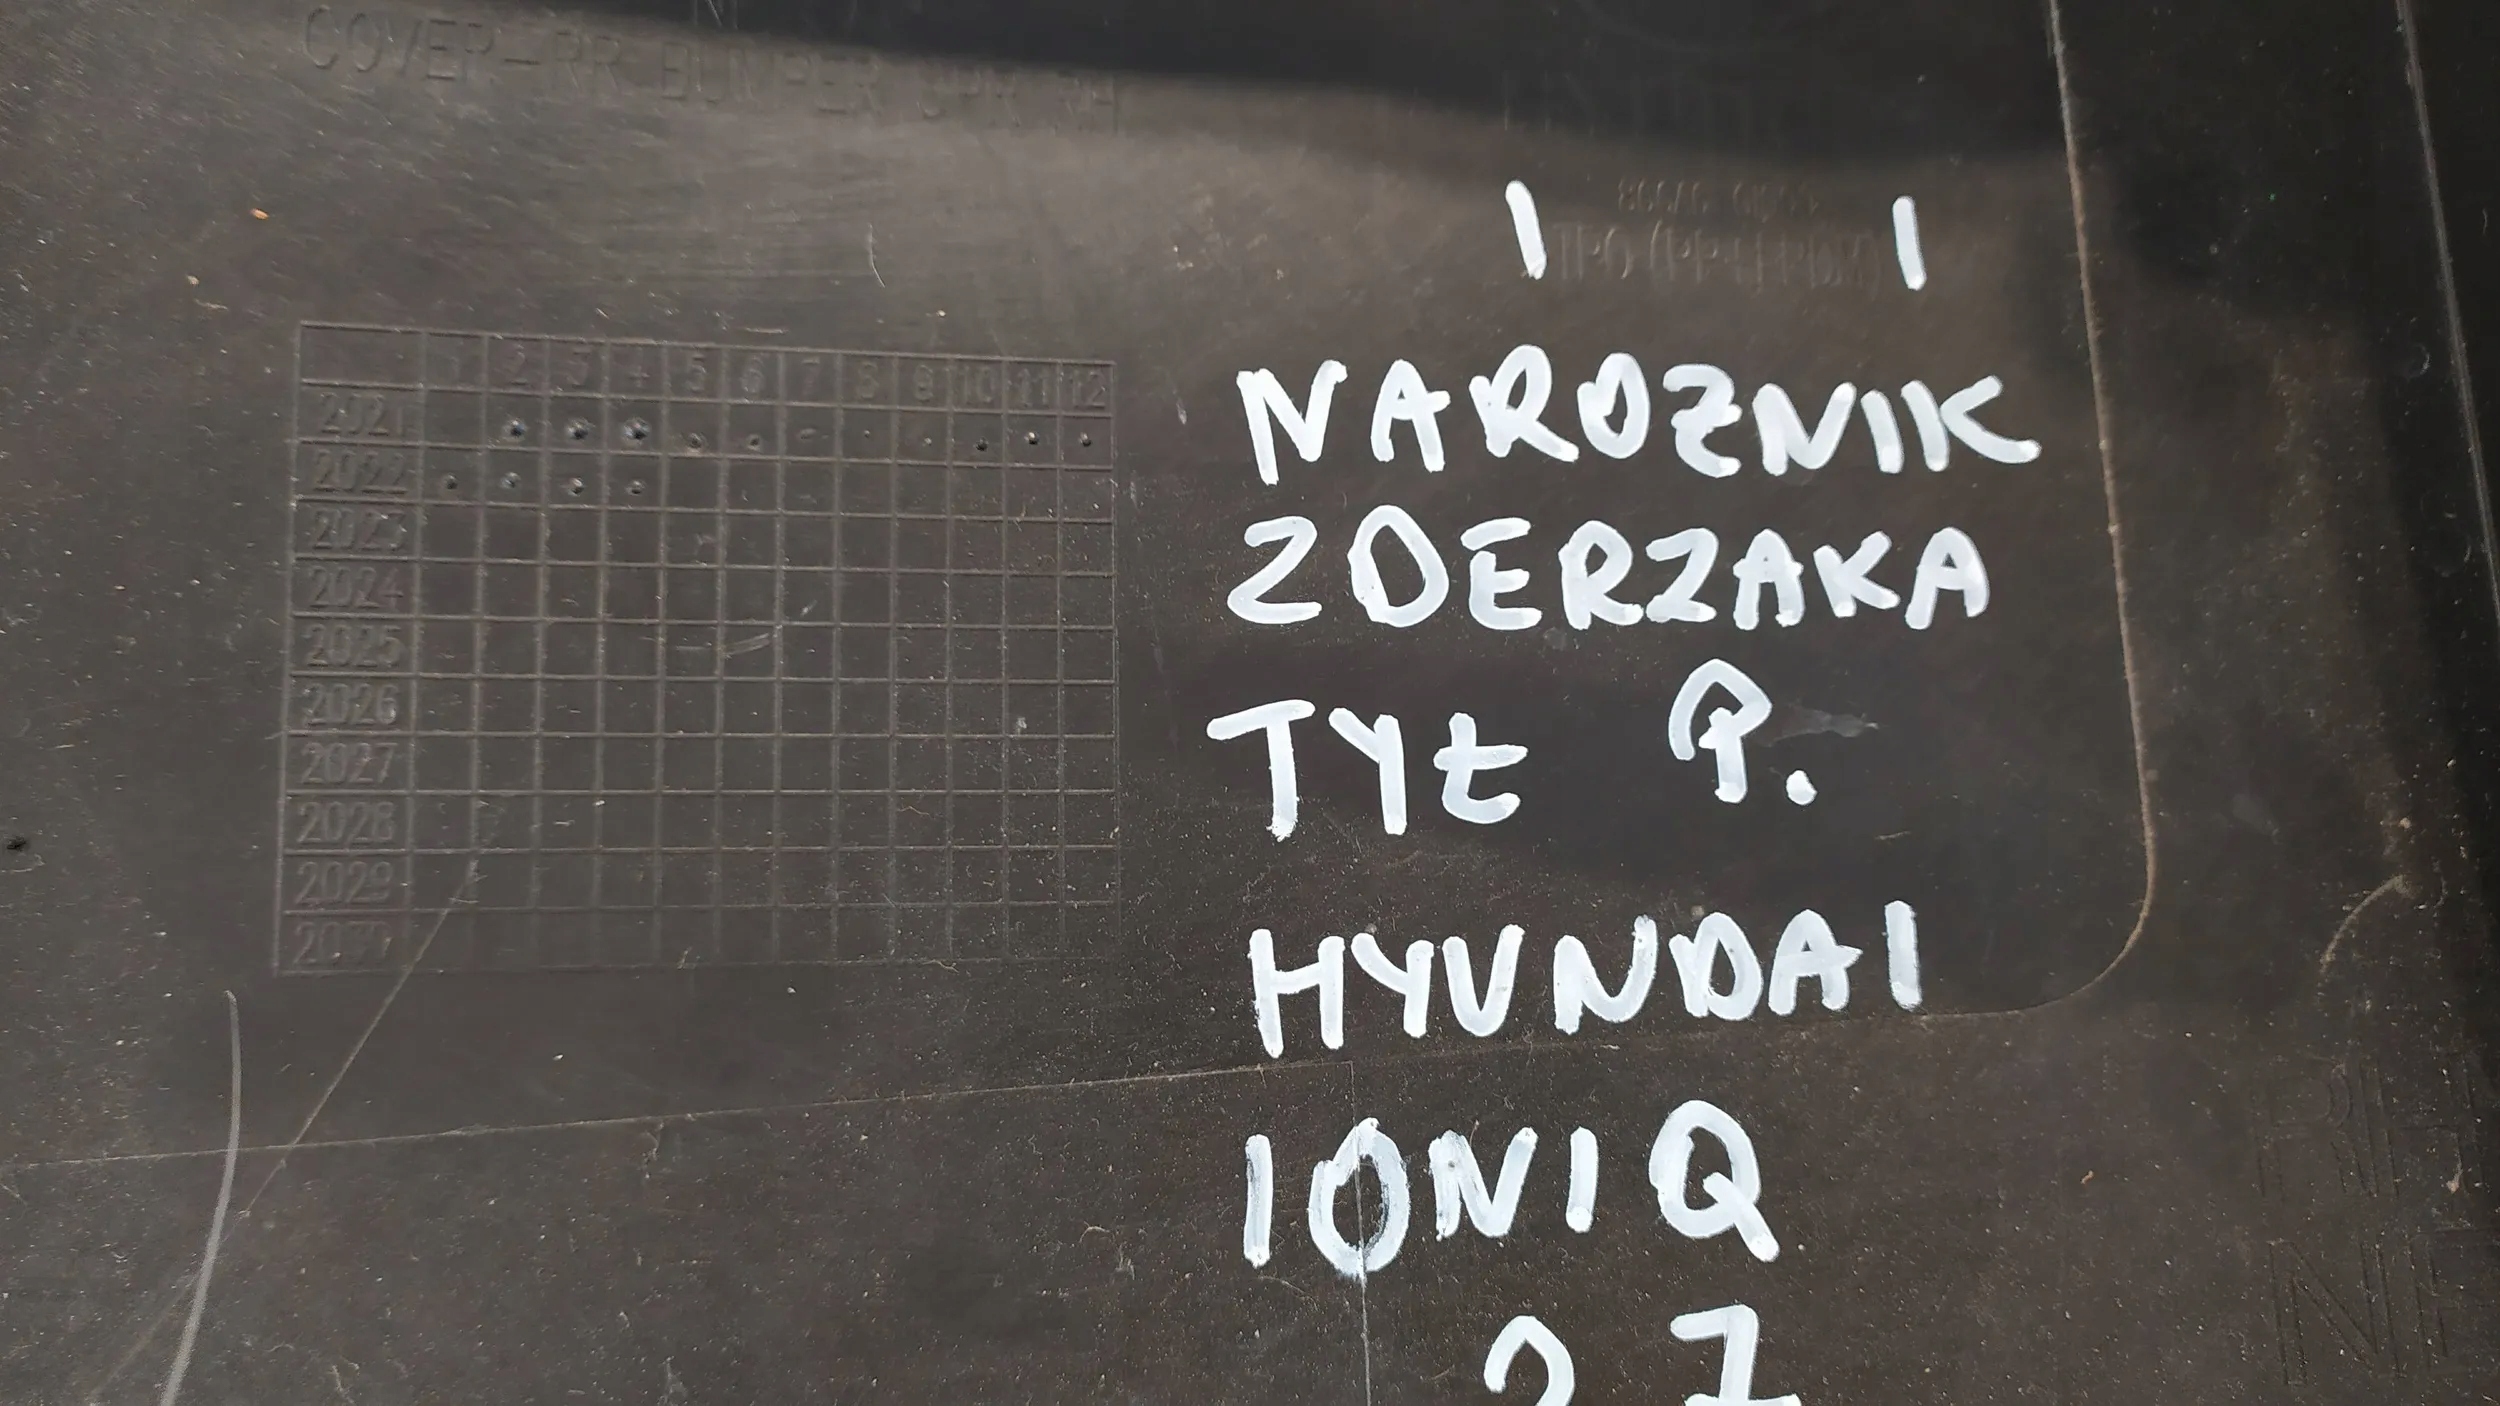 COVER-RR BUMPER SPR RH
TPO (PP+E/P+MD)
1 2 3 4 5 6 7 8 9 10 11 12
2021
2022
2023
2024
2025
2026
2027
2028
2029
NAROZNIK
ZDERZAKA
TYŁ P.
HYUNDAI
IONIQ
RH